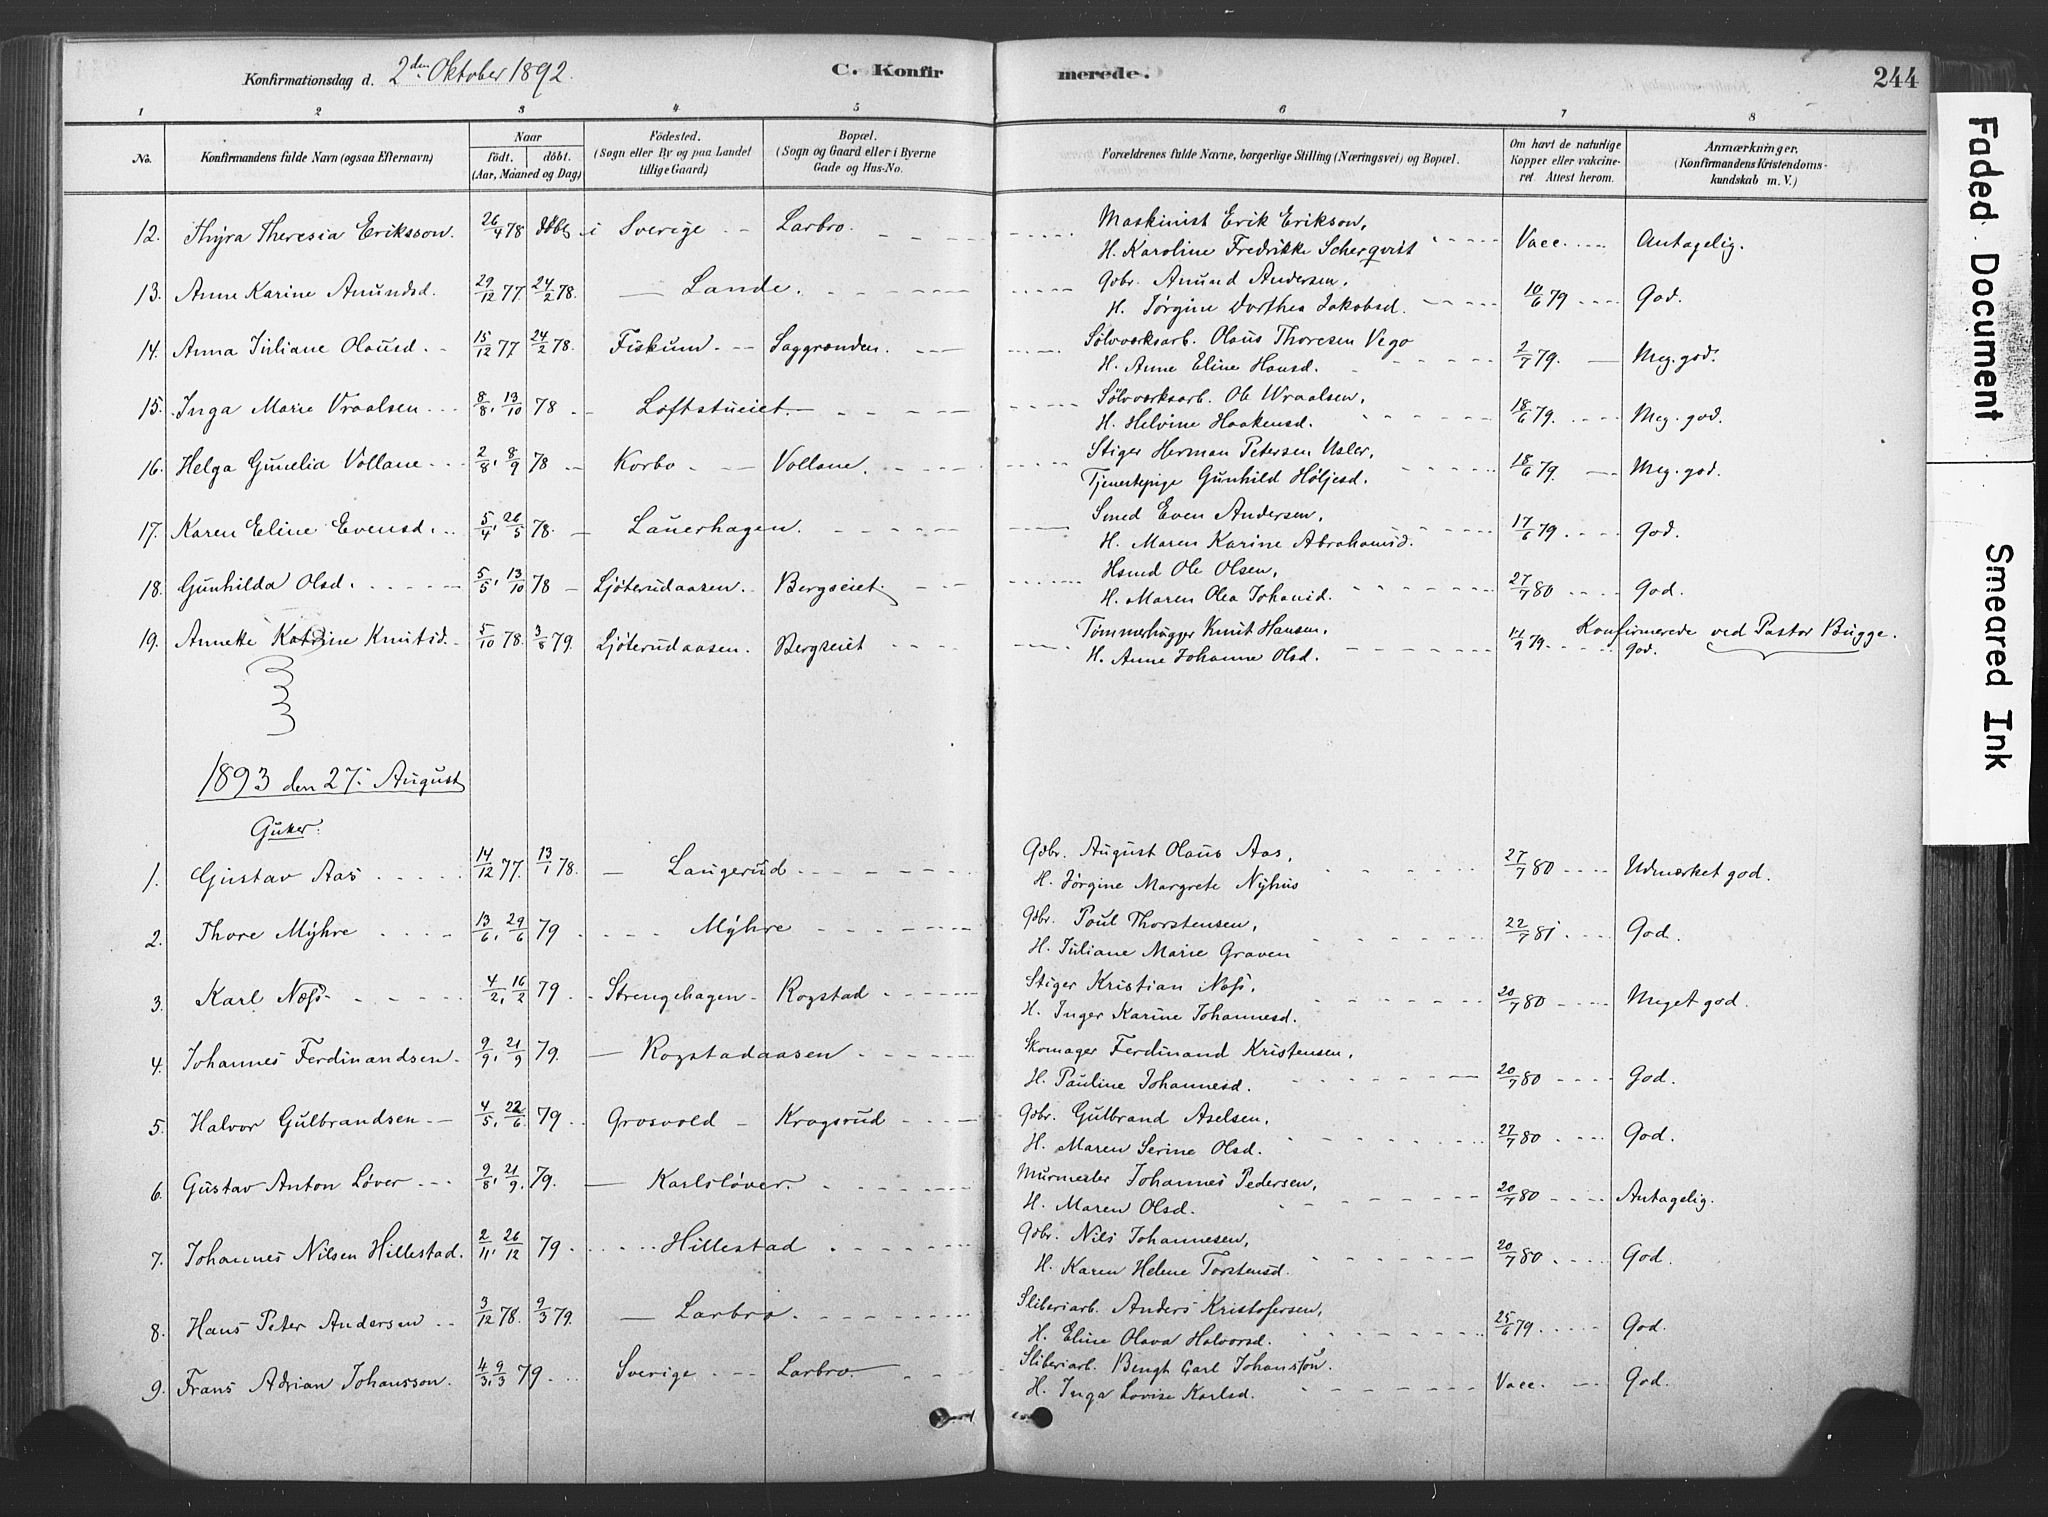 Konfirmationsdag d. 2den Oktober 1892.
C. Konfirmerede.
244
1 2 3 4 5 6 7 8
No.
Konfirmandens fulde Navn (ogsaa Efternavn)
Naar
födt. döbt.
(Aar, Maaned og Dag)
Födested.
(Sogn eller By og paa Landet tillige Gaard)
Bopæl.
(Sogn og Gaard eller i Byerne Gade og Hus-No.
Forældrenes fulde Navne, borgerlige Stilling (Næringsvei) og Bopæl.
Om havt de naturlige Kopper eller vakcineret. Attest herom.
Anmærkninger.
(Konfirmandens Kristendomskundskab m. V.)
12. Thyra Theresia Eriksson. 26/4 78 döbt i Sverige Larbro. Maskinist Erik Erikson, Vacc. Antagelig.
H. Karoline Fredrikke Scherqvist
13. Anne Karine Amundsd. 29/12 77. 24/2 78. Lande. Gdbr. Amund Andersen, 10/6 79 God.
H. Jørgine Dorthea Jakobsd.
14. Anna Juliane Olausd. 15/12 77 24/2 78. Fiskum Saggrenden. Sølvverksarb. Olaus Thoresen Vego 2/7 79. Meg. god.
H. Anne Eline Hansd.
15. Inga Marie Vraalsen 8/8, 13/10 78 Loftstueiet. Sølvverksarb. Ole Wraalsen, 18/6 79. Meg. god.
H. Helvine Haakensd.
16. Helga Gunelia Vollane 2/8, 8/9 78 Korbo Vollane. Stiger Herman Petersen Usler, 18/6 79. Meg. god.
Tjenestepige Gunhild Høljesd.
17. Karen Eline Evensd. 5/4, 26/5 78. Lauerhagen. Smed Even Andersen, 17/6 79. God.
H. Maren Karine Abrahamsd.
18. Gunhilda Olsd. 5/5, 13/10 78 Ljøterudaasen. Bergseiet. Hsmd Ole Olsen, 27/7 80 God.
H. Maren Olea Johansd.
19. Annette Katrine Knutsd. 5/10 78. 3/8 79. Ljøterudaasen. Bergseiet Tømmerhugger Knut Hansen, 11/9 79. God. Konfirmerede ved Pastor Bugge.
H. Anne Johanne Olsd.
1893 den 27. August
Gutter:
1. Gustav Aas 14/12 77. 13/1 78. Laugerud Gdbr. August Olaus Aas, 27/7 80 Udmærket god.
H. Jørgine Margrete Nyhus
2. Thore Myhre 13/6, 29/6 79 Myhre Gdbr. Poul Thorstensen, 22/7 81. God.
H. Juliane Marie Graven
3. Karl Næss 4/2, 16/2 79 Strengehagen Rogstad Stiger Kristian Næss, 20/7 80 Meget god.
H. Inger Karine Johannesd.
4. Johannes Ferdinandsen. 9/9, 21/9 79. Rogstadaasen Skomager Ferdinand Kristensen, 20/7 80 God.
H. Pauline Johannesd.
5. Halvor Gulbrandsen 4/5, 22/6 79 Grosvold Kragsrud Gdbr. Gulbrand Axelsen, 27/7 80 God.
H. Maren Serine Olsd.
6. Gustav Anton Løver 9/8, 21/9. 79. Karlsløver. Murmester Johannes Pedersen, 20/7 80 Antagelig.
H. Maren Olsd.
7. Johannes Nilsen Hillestad. 2/11, 26/12 79 Hillestad Gdbr. Nils Johannesen, 20/7 80 God.
H. Karen Helene Torstensd.
8. Hans Peter Andersen 3/12 78. 9/3 79. Larbro. Sliberiarb. Anders Kristofersen, 25/6 79 God.
H. Eline Olava Halvorsd.
9. Frans Adrian Johansson. 4/3, 9/3 79 Sverige Larbro Sliberiarb. Bengt Carl Johansson. Vacc. God.
H. Inga Lovise Karlsd.
Faded Document
Smeared Ink